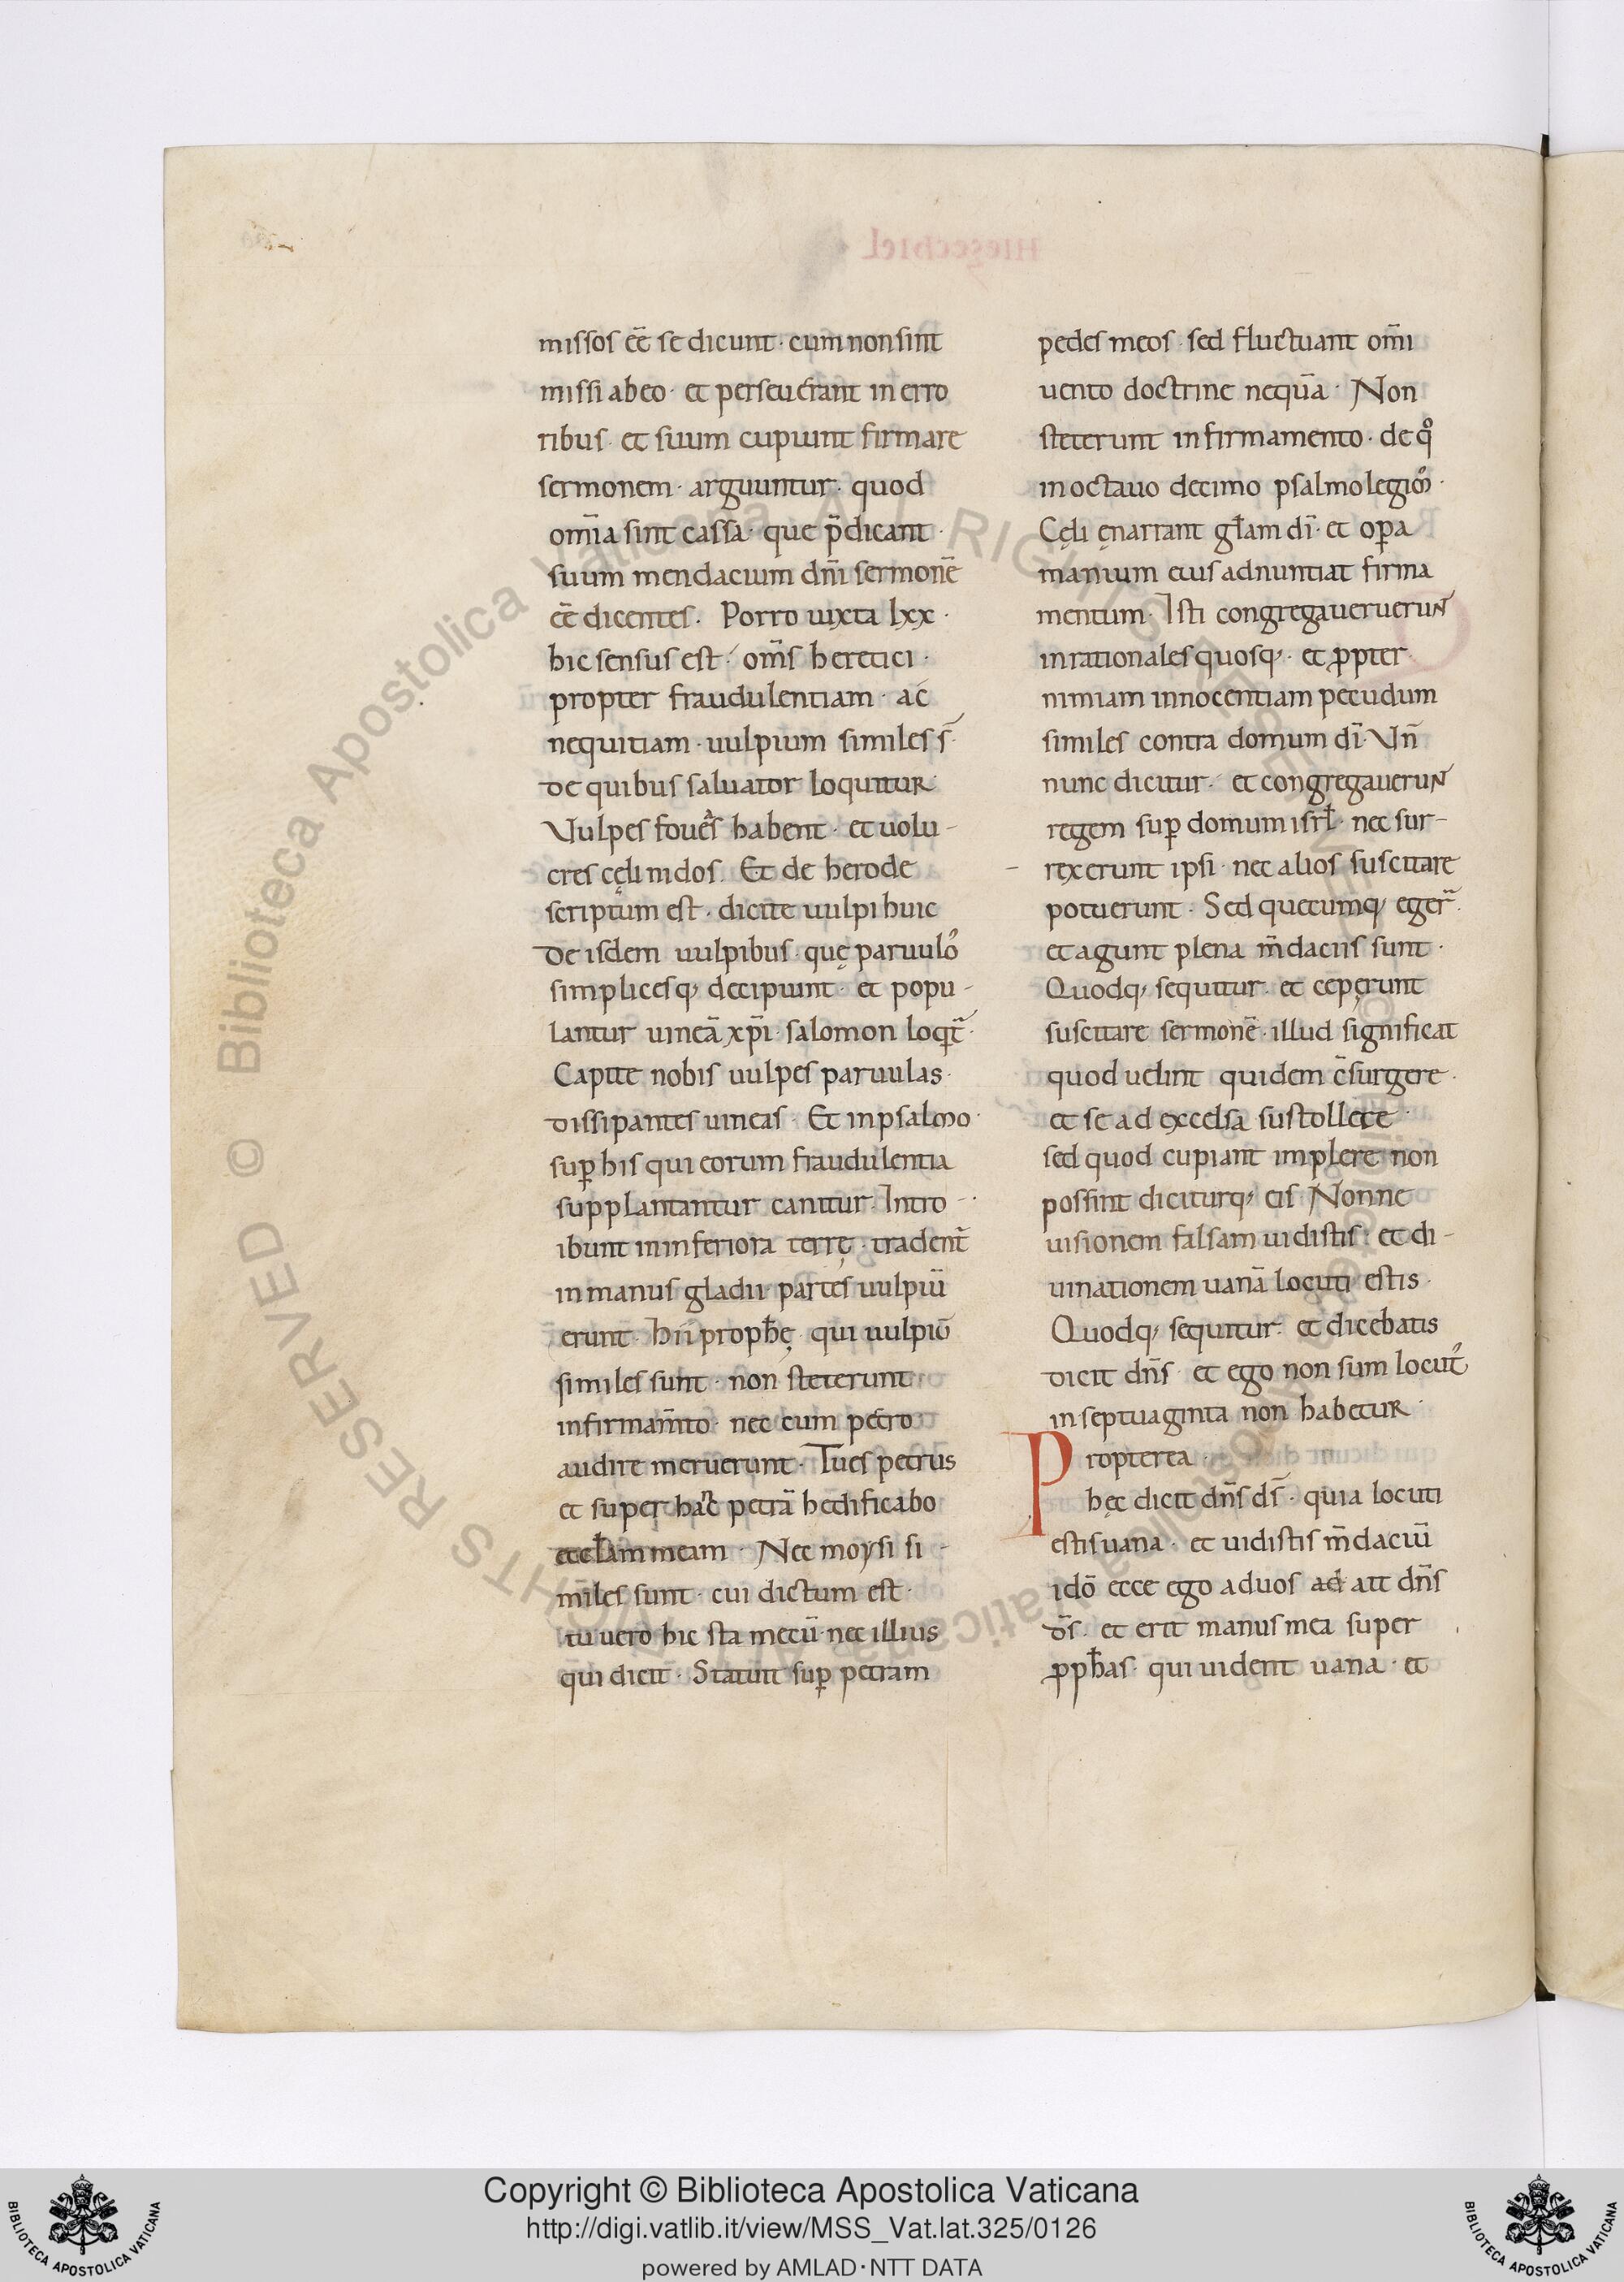 missos ee̅ se dicunt · cum non sint
missi ab eo · et perseuerant in erro
ribus · et suum cupiunt firmare
sermonem · arguuntur · quod
om̅ia sint cassa · que p̅dicant ·
suum mendacium dn̅i sermone̅
ee̅ dicentes . Porro iuxta lxx ·
hic sensus est · om̅s heretici ·
propter fraudulentiam · ac
nequitiam · uulpium similes s̅ ·
de quibus saluator loquitur ·
Vulpes foues habent · et uolu -
cres cęli nidos . Et de herode
scriptum est · dicite uulpi huic
De isdem uulpibus · quę paruulo᷒
simplicesq; decipiunt · et popu -
lantur uinea̅ xp̅i · salomon loqt̅ ·
Capite nobis uulpes paruulas ·
dissipantes uineas · Et in psalmo ·
sup̱ his qui eorum fraudulentia
supplantantur canitur . Intro - ·
ibunt in inferiora terrę · tradent̅
in manus gladii partes uulpiu̅
erunt · hii proph̅ę qui uulpiu̅
similes sunt · non steterunt
in firmam̅to · nec cum petro
audire meruerunt · Tu es petrus
et super hac petra̅ hedificabo
eccl̅am meam · Nec moysi si -
miles sunt · cui dictum est ·
tu uero hic sta mecu̅ · nec illius
qui dicit · Statuit sup̱ petram
pedes meos · sed fluctuant om̅i
uento doctrine nequa̅ · Non
steterunt in firmamento · de qͦ
in octauo decimo psalmo legim᷒ ·
Cęli ęnarrant gl̅am di̅ · et op̱a
manuum eius adnuntiat firma
mentum · Isti congregaueruerunt
inrationales quosq; · et ꝓpter
nimiam innocentiam pecudum
similes contra domum di̅ · Vn̅
nunc dicitur · et congregauerunt
regem sup̱ domum isrl̅ · nec sur -
rexerunt ipsi · nec alios suscitare
potuerunt · Sed quecumq; eger̅ ·
et agunt plena m̅daciis sunt ·
Quodq; sequitur · et cepęrunt
suscitare sermone̅ · illud significat
quod uelint quidem c̅surgere ·
et se ad excelsa sustollere ·
sed quod cupiant implere non
possint diciturq; eis Nonne
uisionem falsam uidistis · et di -
uinationem uana̅ locuti estis ·
Quodq; sequitur · et dicebatis
dicit dn̅s · et ego non sum locut᷒
in septuaginta non habetur ·
Propterea ·
hęc dicit dn̅s ds̅ · quia locuti
estis uana · et uidistis m̅daciu̅
ido̅ ecce ego ad uos ad ait dn̅s
ds̅ · et erit manus mea super
ꝓph̅as · qui uident uana · et
Copyright © Biblioteca Apostolica Vaticana
http://digi.vatlib.it/view/MSS_Vat.lat.325/0126
powered by AMLAD·NTT DATA
BIBLIOTECA APOSTOLICA VATICANA
BIBLIOTECA APOSTOLICA VATICANA